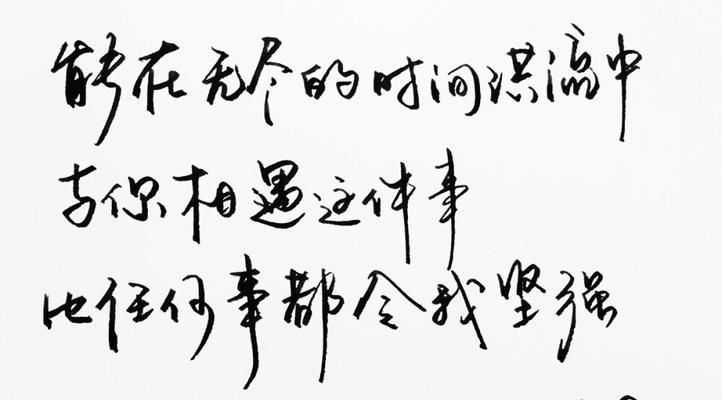 能在无尽的时间洪流中
与你相遇这件事
比任何事都令我坚强